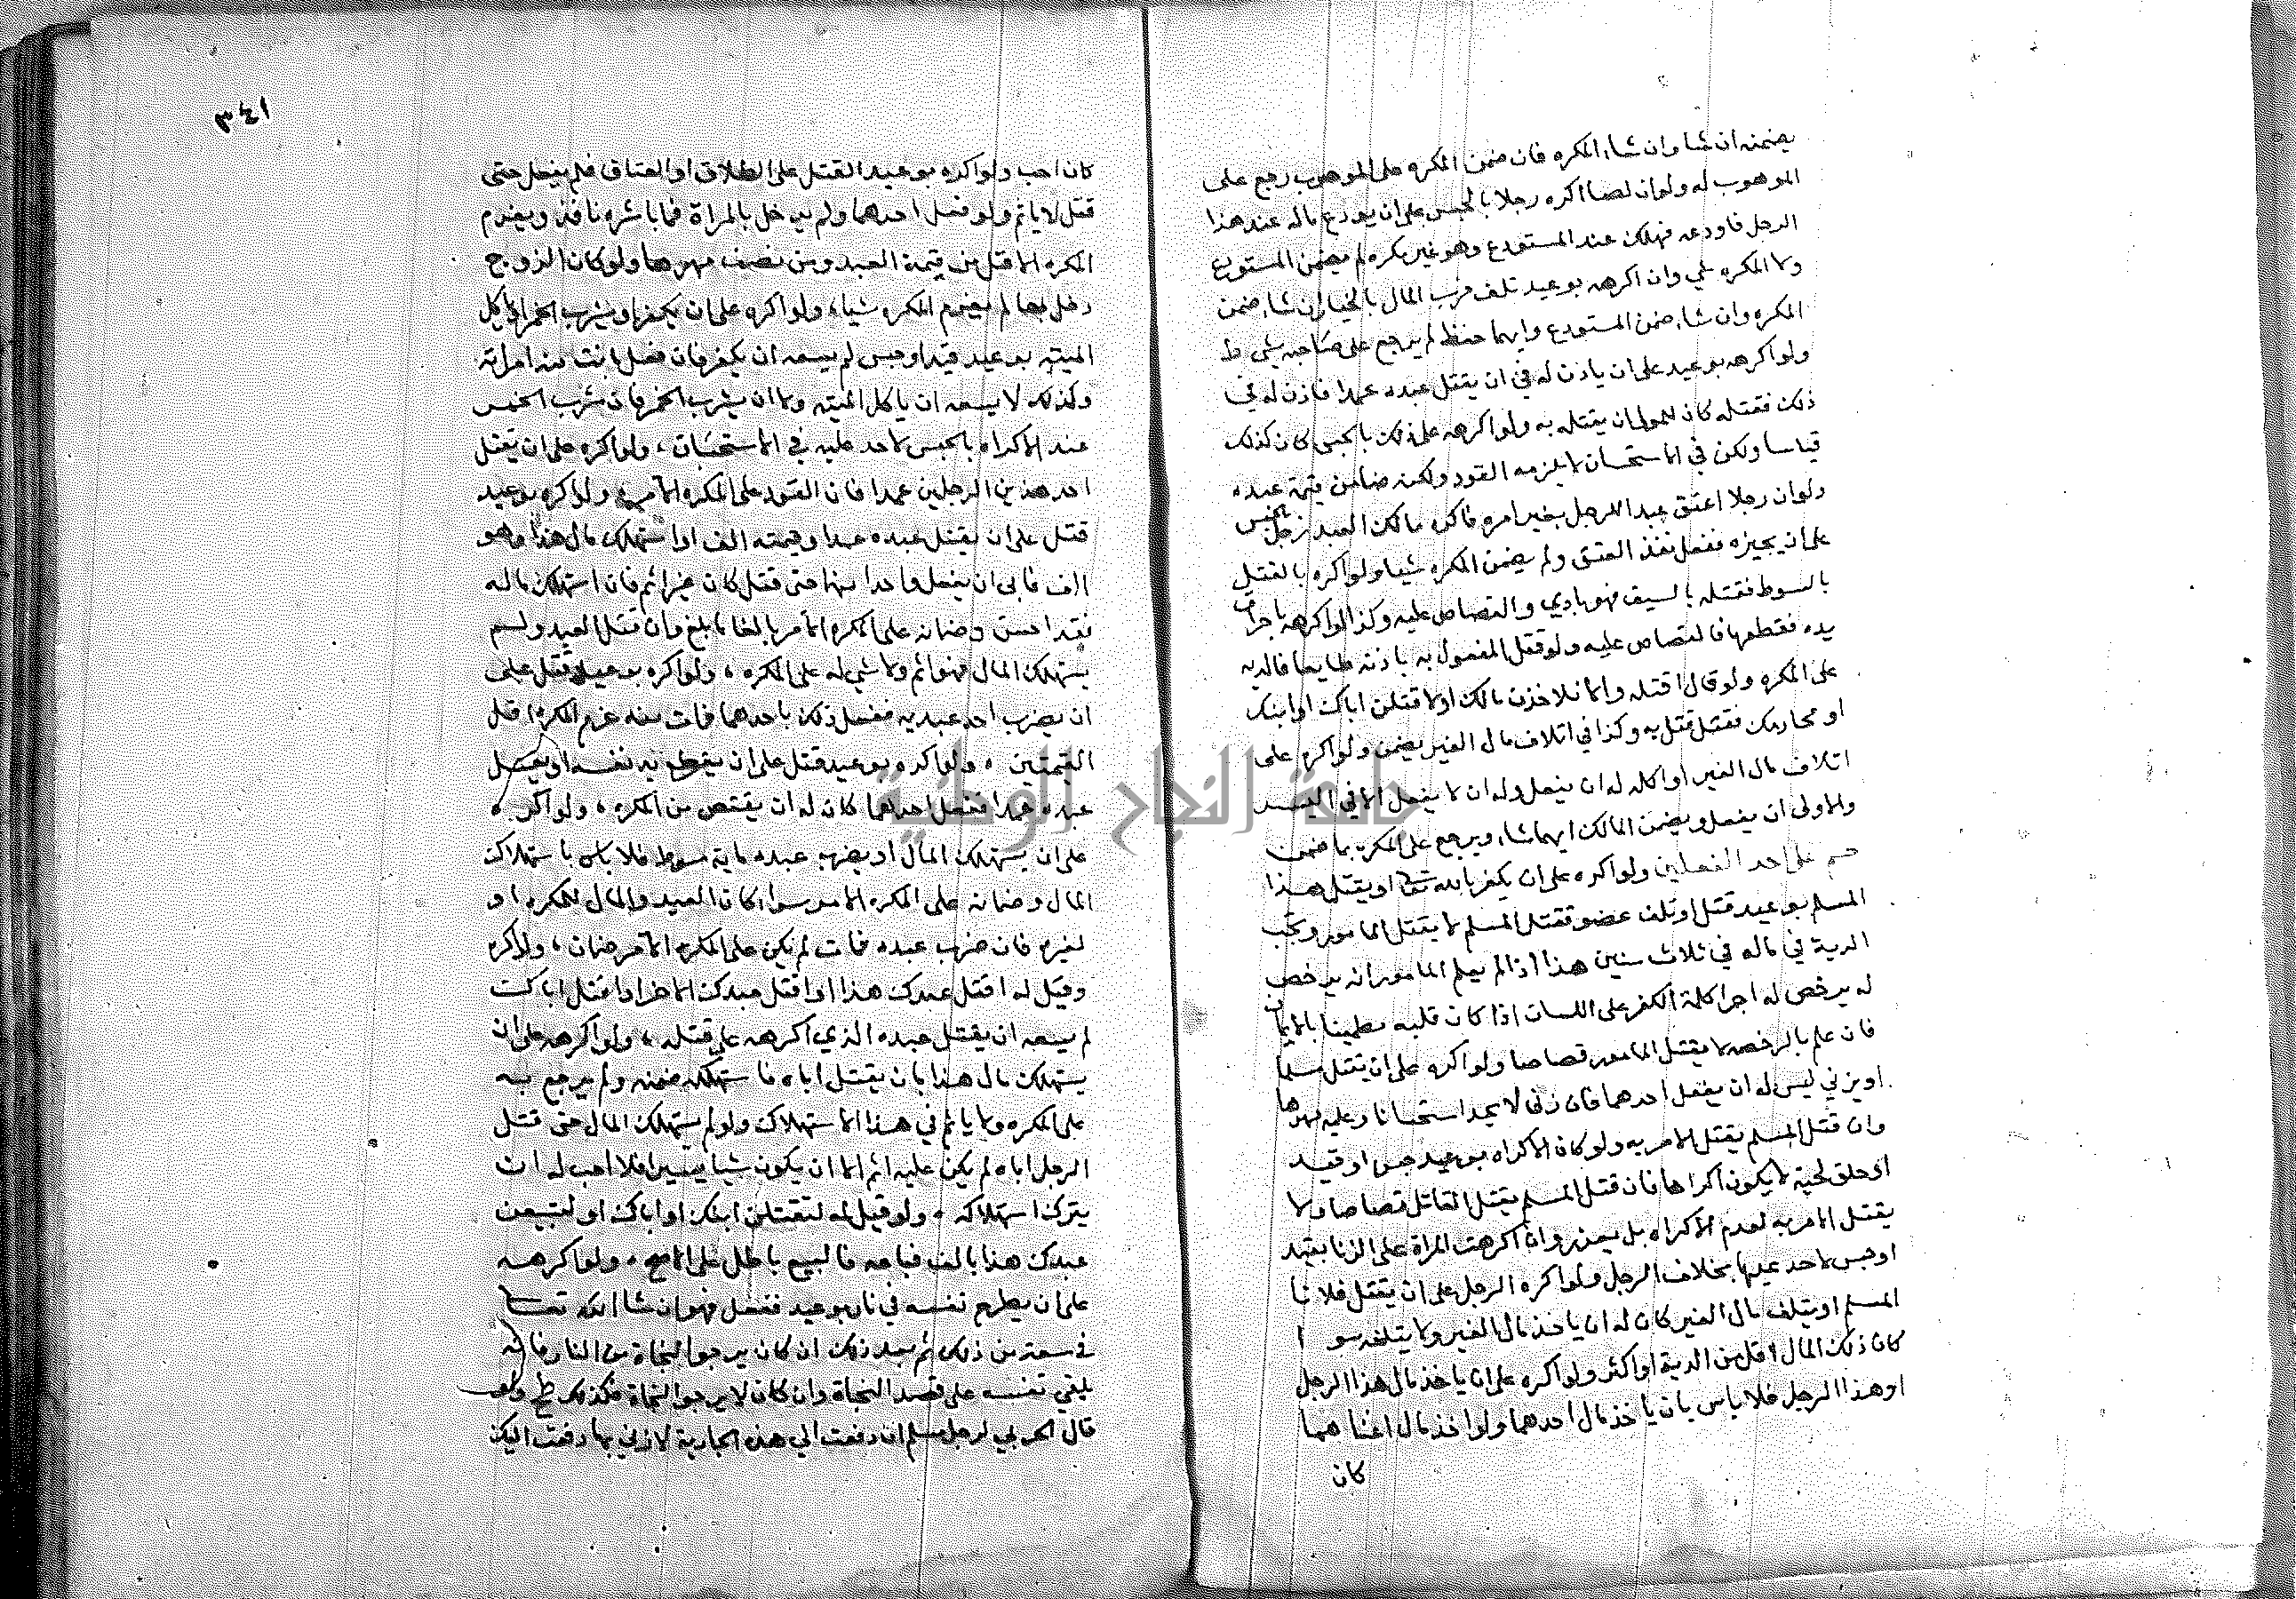 يضمنه ان شا وان شاء المكره فان ضمن المكره على الموهوب رجع على
الموهوب له ولو ان لصا اكره رجلا بالحبس على ان يودع ماله عند هذا
الرجل فاودعه فهلك عند المستودع وهو غير مكره لم يضمن المستودع
ولا المكره شي وان اكرهه بوعيد تلف فرب المال بالخيار ان شاء ضمن
المكره وان شاء ضمن المستودع وايهما ضمن لم يرجع على صاحبه بشي ط
ولو اكرهه بوعيد على ان ياذن له في ان يقتل عبده عمدا فاذن له في
ذلك فقتله كان للمولى ان يقتله به ولو اكرهه على ذلك بالحبس كان كذلك
قياسا ولكن في الاستحسان لا يلزمه القود ولكنه ضامن قيمة عبده
ولو ان رجلا اعتق عبدا لرجل بغير امره فاكره مالك العبد رجل بالحبس
على ان يجيزه ففعل نفذ العتق ولم يضمن المكره شيا ولو اكره بالقتل
بالسوط فقتله بالسيف فهو بادي والقصاص عليه وكذا لو اكرهه باحراق
يده فقطعها فالقصاص عليه ولو قتل المفعول به باذنه طايعا فالديه
على المكره ولو قال اقتله والا نلاخذن مالك او لاقتلن اباك او ابنك
او محارمك فقتل قتل به وكذا في اتلاف مال الغير يضمن ولو اكره على
اتلاف مال الغير او اكله له ان يفعل وله ان لا يفعل الا في اليسير
والاولى ان يفعل ويضمن المالك ايهما شاء ويرجع على المكره بما ضمن
على احد الفصلين ولو اكره على ان يكفر بالله تعا او يقتل هذا
المسلم بوعيد قتل او تلف عضو فقتل المسلم لا يقتل المامور وتجب
الدية في ماله في ثلاث سنين هذا اذا لم يعلم المامور انه يرخص
له يرخص له اجرا كلمة الكفر على اللسان اذا كان قلبه مطمينا بالايمان
فان علم بالرخصه لا يقتل المامور قصاصا ولو اكره على ان يقتل مسلما
او يزني ليس له ان يفعل احدهما فان زنى لا يحد استحسانا وعليه مهرها
وان قتل المسلم يقتل الامر به ولو كان الاكراه بوعيد حبس او قيد
او حلق لحية لا يكون اكراها فان قتل المسلم يقتل القاتل قصاصا ولا
يقتل الامر به لعدم الاكراه بل يعزر وان اكرهت المراة على الزنا بقيد
او حبس لا حد عليها بخلاف الرجل ولو اكره الرجل على ان يقتل فلانا
المسلم او يتلف مال الغير كان له ان ياخذ مال الغير ولا يتلفه سوا
كان ذلك المال اقل من الدية او اكثر ولو اكره على ان ياخذ مال هذا الرجل
او هذا الرجل فلا باس بان ياخذ مال احدهما ولو اخذ مال اغناهما
كان
٣٤١
كان احب ولو اكره بوعيد القتل على الطلاق او العتاق فلم يفعل حتى
قتل لا ياثم ولو فعل احدهما ولم يدخل بالمراة فما باشره نافذ ويغرم
المكره الاقل من قيمة العبد ومن نصف مهرها ولو كان الزوج
دخل بها لم يغرم المكره شيا، ولو اكره على ان يكفر او يشرب الخمر او ياكل
الميته بوعيد قيد او حبس لم يسعه ان يكفر فان فعل بانت منه امراته
وكذلك لا يسعه ان ياكل الميته ولا ان يشرب الخمر فان شرب الخمر
عند الاكراه بالحبس لا حد عليه في الاستحسان، ولو اكره على ان يقتل
احد هذين الرجلين عمدا فان القود على المكره الامر، ولو اكره بوعيد
قتل على ان يقتل عبده عمدا وقيمته الف او استهلك مال هذا وهو
الف فابى ان يفعل واحدا منهما حتى قتل كان غير اثم فان استهلك ماله
فقد احسن وضمانه على المكره الامر بالغا ما بلغ وان قتل العبد ولم
يستهلك المال فهو اثم ولا شي له على المكره، ولو اكره بوعيد قتل على
ان يضرب احد عبديه ففعل ذلك باحدهما فمات منه غرم المكره اقل
القيمتين، ولو اكره بوعيد قتل على ان يقطع يد نفسه او يقتل
عبده عمدا ففعل احدهما كان له ان يقتص من المكره، ولو اكره
على ان يستهلك المال او يضرب عبده ماية سوط فلا باس باستهلاك
المال وضمانه على المكره الامر سواء كان العبد والمال للمكره او
لغيره فان ضرب عبده فمات لم يكن على المكره الامر ضمان، ولو اكره
وقيل له اقتل عبدك هذا او اقتل عبدك الاخر او اقتل اباك
لم يسعه ان يقتل عبده الذي اكرهه على قتله، ولو اكرهه على ان
يستهلك مال هذا بان يقتل اباه فاستهلكه ضمنه ولم يرجع به
على المكره ولا ياثم في هذا الاستهلاك ولو لم يستهلك المال حتى قتل
الرجل اباه لم يكن عليه اثم الا ان يكون شيا يسيرا فلا احب له ان
يترك استهلاكه، ولو قيل له لنقتلن ابنك او اباك او لتبيعن
عبدك هذا بالف فباعه فالبيع باطل على الاصح، ولو اكرهه
على ان يطرح نفسه في نار بوعيد ففعل فهو ان شا الله تعا
في سعة من ذلك ثم بعد ذلك ان كان يرجو النجاة من النار فانه
يلقي نفسه على قصد النجاة وان كان لا يرجو النجاة فكذلك ط ولو
قال الحربي لرجل مسلم ان دفعت الي هذه الجارية لازني بها دفعت اليك
جامعة النجاح الوطنية